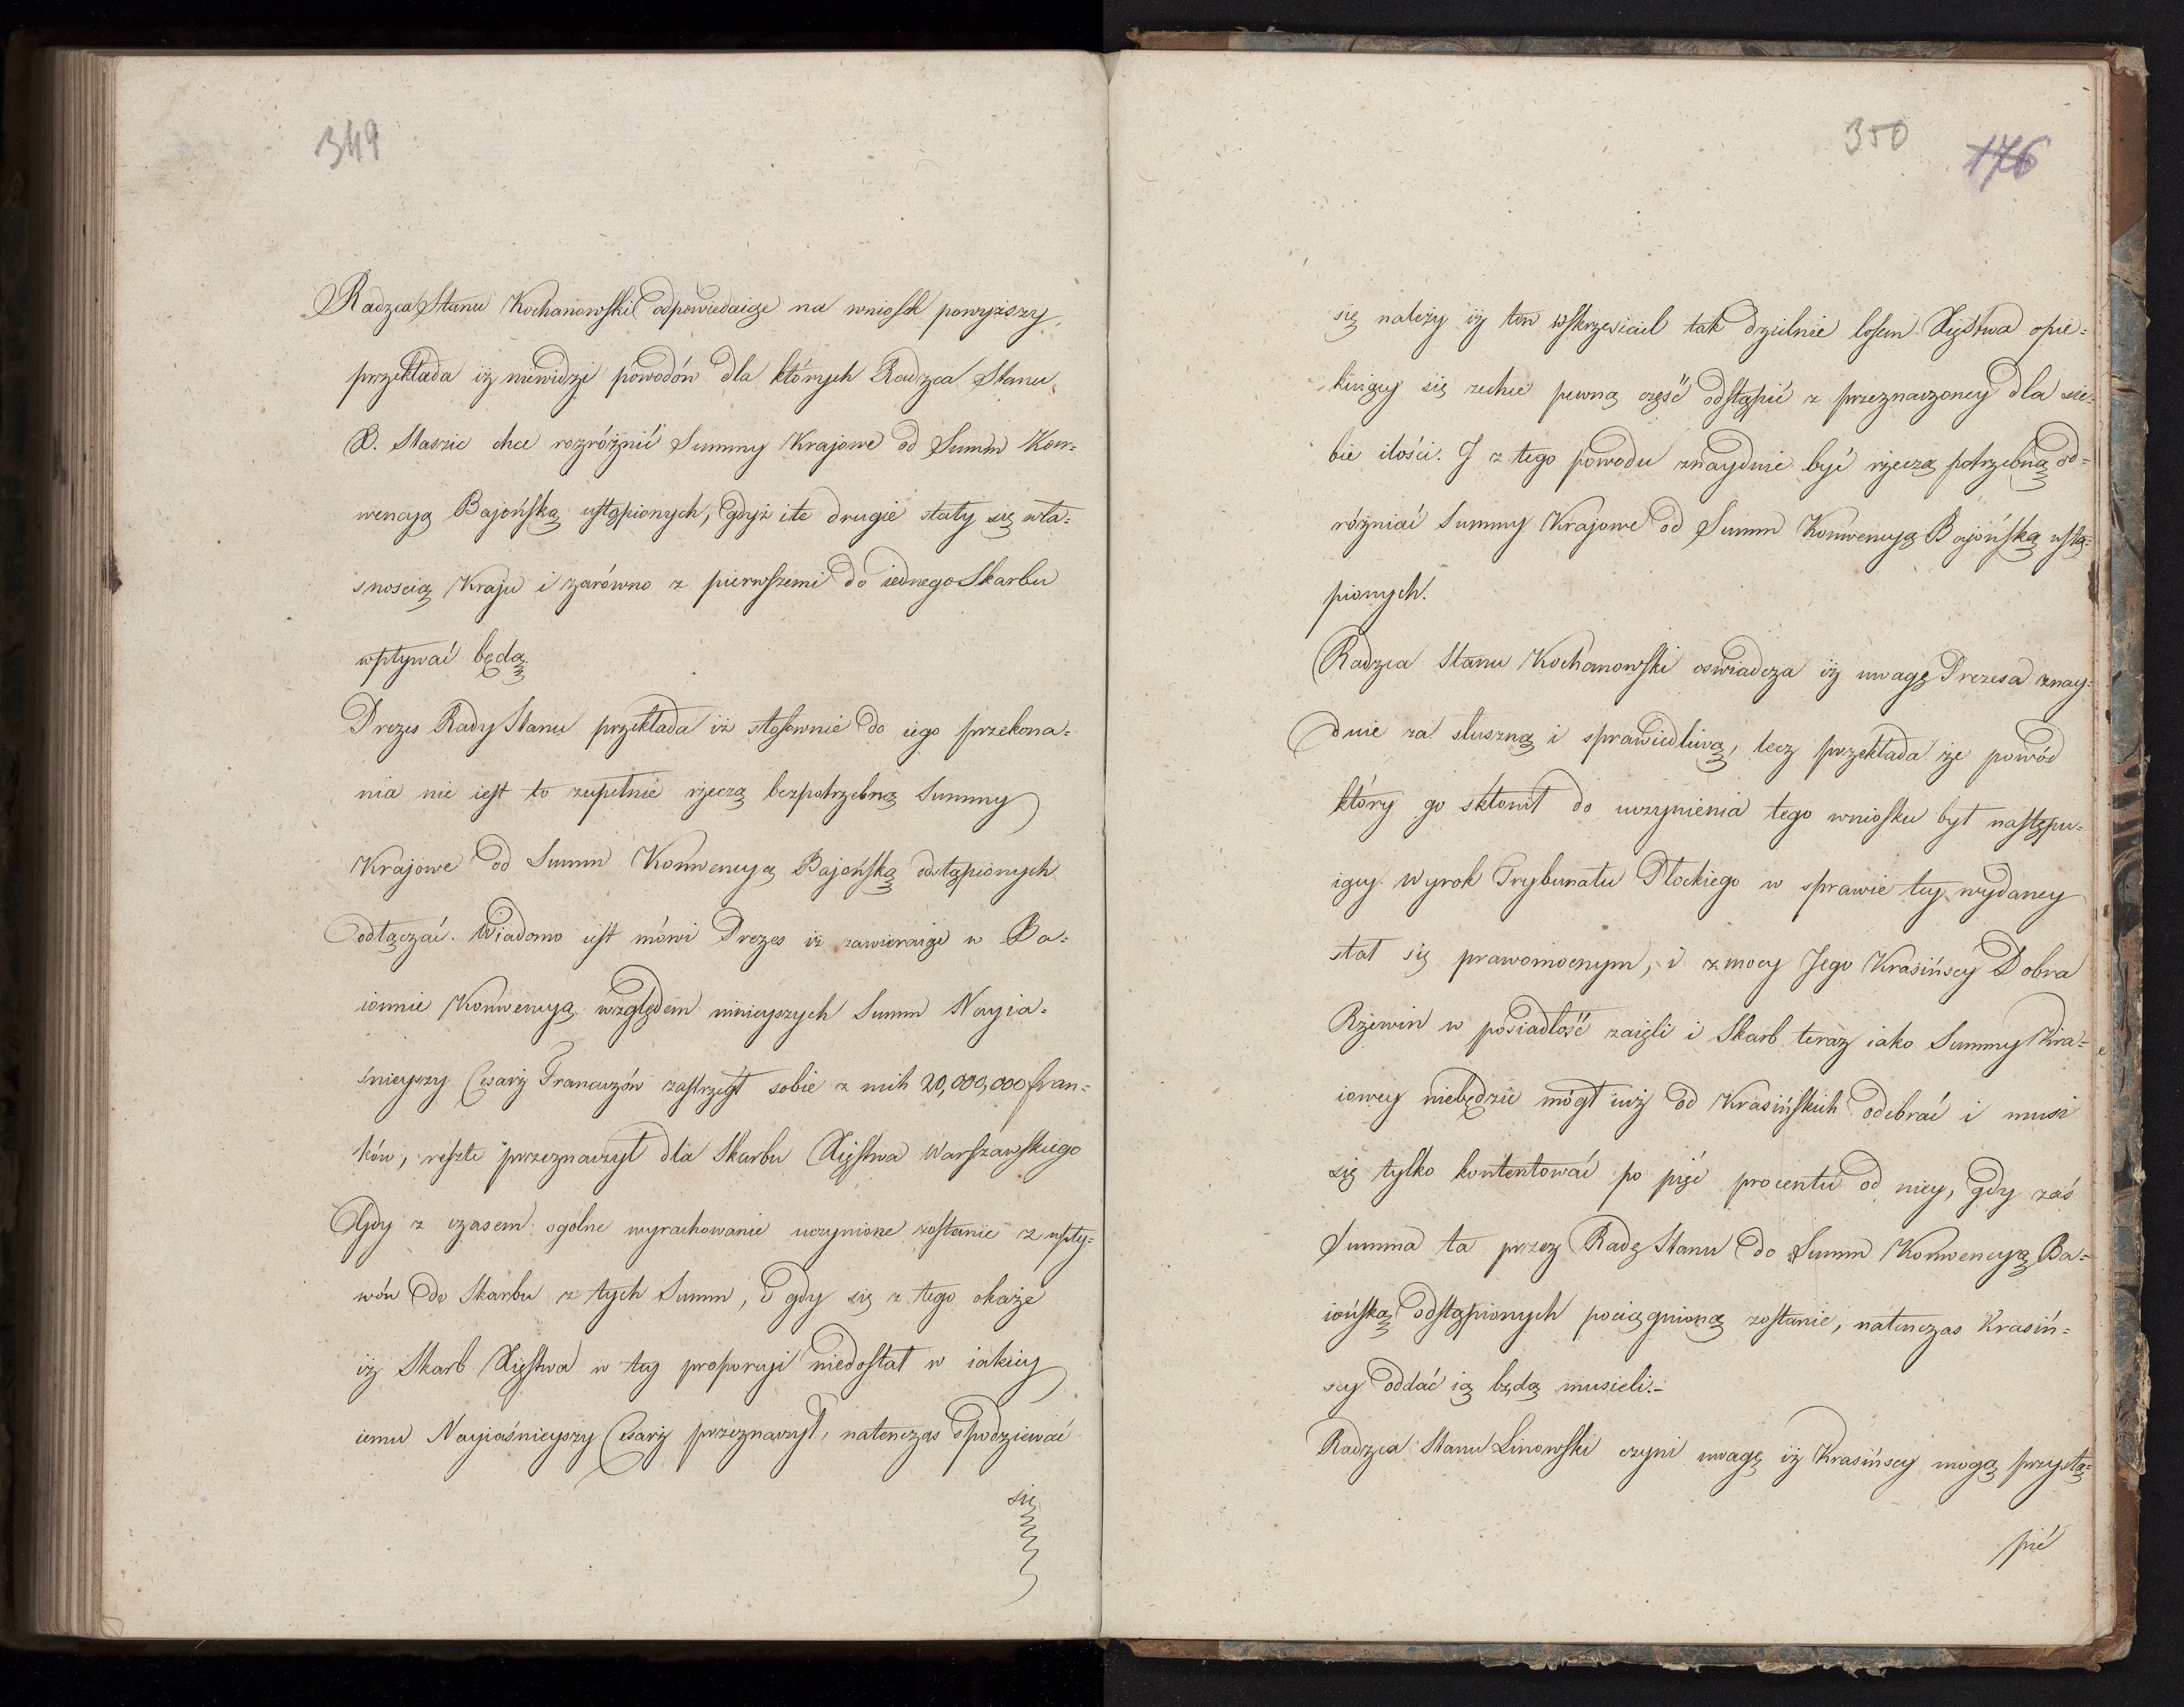 349
Radzca Stanu Kochanowski odpowiedaiąc na wniosek powyższy,
przekłada iż niewidzi powodów dla których Radzca Stanu
X. Staszic chce rozróżnić Summy Krajowe od Summ Kon=
wencyą Bajońską ustąpionych, gdyż i te drugie stały się wła=
snoscią Kraju i zarówno z pierwszemi do iednego Skarbu
wpływać będą.
Prezes Rady Stanu przekłada iż stosownie do iego przekona=
nia nie iest to zupełnie rzeczą bezpotrzebną Summy
Krajowe od Summ Konwencyą Bajońską odstąpionych
odłączać. Wiadomo iest mówi Prezes iż zawieraiąc w Ba=
ionnie Konwencyą względem ninieyszych Summ Nayia=
śnieyszy Cesarz Francuzów zastrzegł sobie z nich 20,000,000 fran=
ków, reszte przeznaczył dla Skarbu Xięstwa Warszawskiego
Gdy z czasem ogólne wyrachowanie uczynione zostanie z wpły=
wów do Skarbu z tych Summ, i gdy się z tego okaże
iż Skarb Xięstwa w tey proporcyi niedostał w iakiey
iemu Nayiaśnieyszy Cesarz przeznaczył, natenczas spodziewać
się
350
176
się należy iż ten Wskrzesiciel tak dzielnie losem Xięstwa opie=
kuiący się zechce pewną część odstąpić z przeznaczoney dla sie=
bie ilości. I z tego powodu znayduie być rzeczą potrzebną od=
różniać Summy Krajowe od Summ Konwencyą Bajońską ustą=
pionych.
Radzca Stanu Kochanowski oswiadcza iż uwagę Prezesa znay=
duie za słuszną i sprawiedliwą, lecz przekłada że powód
który go skłonił do uczynienia tego wniosku był następu=
iący. Wyrok Trybunału Płockiego w sprawie tey wydaney
stał się prawomocnym, i z mocy Jego Krasińscy Dobra
Rżewin w posiadłość zaięli i Skarb teraz iako Summy Kra=
iowey niebędzie mógł iuż od Krasińskich odebrać i musi
się tylko kontentować po pięć procentu od niey, gdy zaś
Summa ta przez Radę Stanu do Summ Konwencyą Ba=
iońską odstąpionych pociągnioną zostanie, natenczas Krasiń=
scy oddać ią będą musieli.-
Radzca Stanu Linowski czyni uwagę iż Krasińscy mogą przystą=
pić